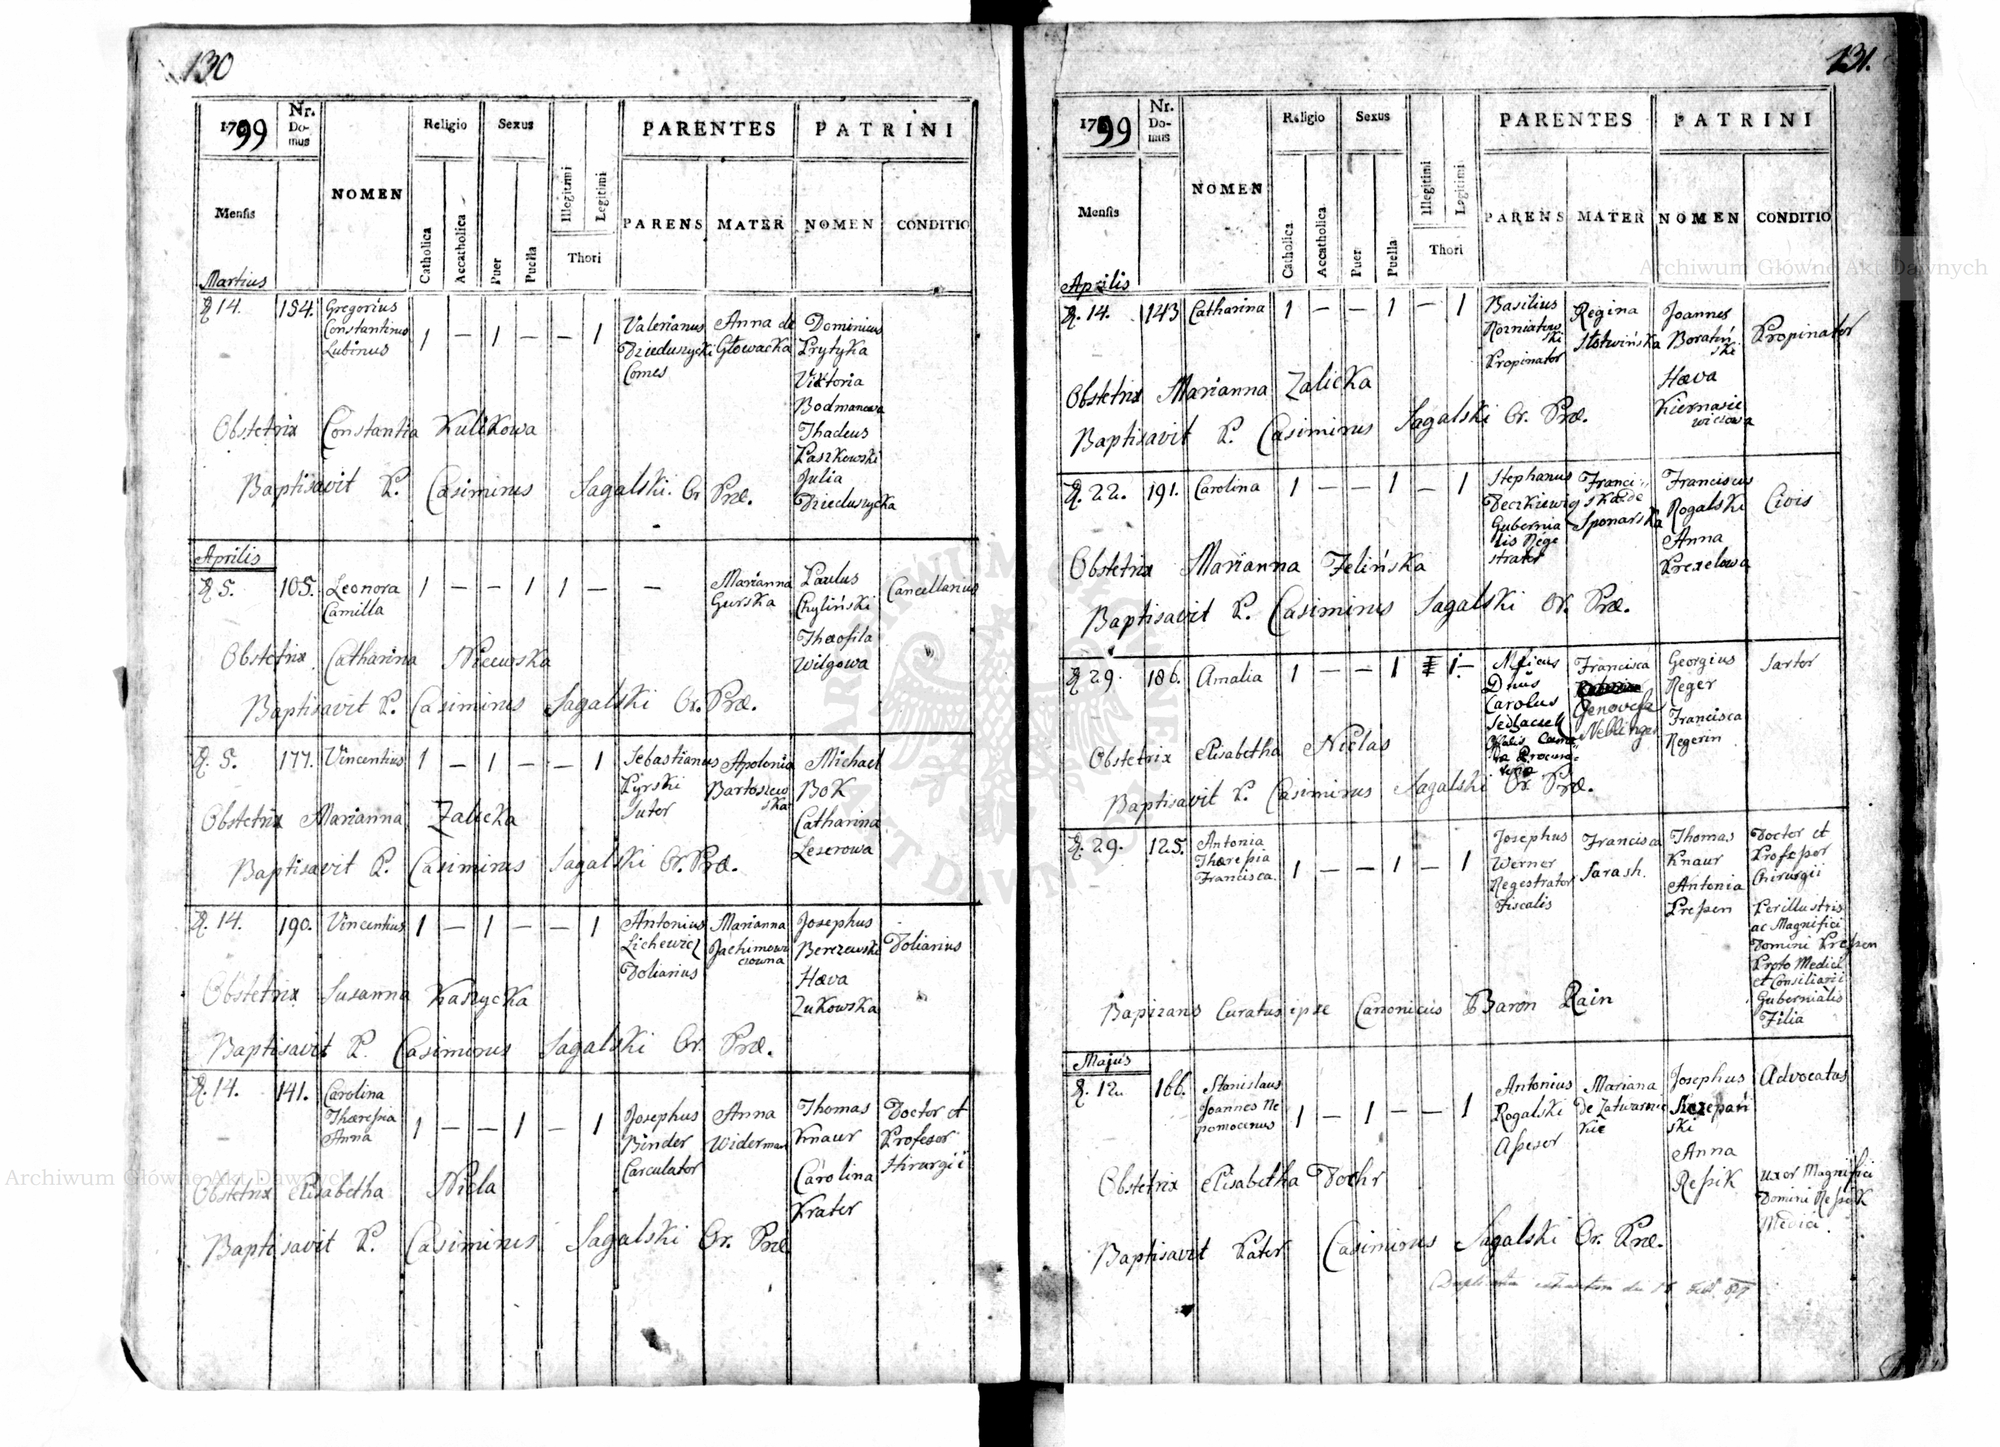 130
1799
Nr. Do- mus
NOMEN
Religio
Sexus
Illegitimi
Legitimi
PARENTES
PATRINI
Mensis
Catholica
Accatholica
Puer
Puella
Thori
PARENS
MATER
NOMEN
CONDITIO
Martius
14. 154. Gregorius 1 — 1 — — 1 Valerianus Anna de Dominicus
Constantinus Dzieduszycki Głowacka Prytyka
Lubinus Comes Viktoria
Bodmanowa
Obstetrix Constantia Kulikowa Thadeus
Paszkowski
Julia
Baptisavit P. Casimirus Sagalski. Or. Præ. Dzieduszycka
Aprilis
5. 105. Leonora 1 — — 1 1 — — Marianna Paulus Cancellarius
Camilla Gurska Chyliński
Theofila
Obstetrix Catharina Nicewska Wilgowa
Baptisavit P. Casimirus Sagalski Or. Præ.
5. 177. Vincentius 1 — 1 — — 1 Sebastianus Apolonia Michael
Pyrski Bartoszew BoK
Sutor ska Catharina
Obstetrix Marianna Zalicka Leserowa
Baptisavit P. Casimirus Sagalski Or. Præ.
14. 190. Vincentius 1 — 1 — — 1 Antonius Marianna Josephus
Lichewicz Jachimowi Berezewski Doliarius
Doliarius czowna Hæva
Obstetrix Susanna Kaszycka Zukowska
Baptisavit P. Casimirus Sagalski Or. Præ.
14. 141. Carolina 1 — — 1 — 1 Josephus Anna Thomas Doctor et
Thæresia Binder Widerman Knaur Profesor
Anna Carculator Carolina Hirurgii
Obstetrix Elisabetha Niela Krater
Baptisavit P. Casimirus Sagalski Or. Præ.
131.
1799
Nr. Do- mus
NOMEN
Religio
Sexus
Illegitimi
Legitimi
PARENTES
PATRINI
Mensis
Catholica
Accatholica
Puer
Puella
Thori
PARENS
MATER
NOMEN
CONDITIO
Aprilis
14. 143 Catharina 1 — — 1 — 1 Basilius Regina Joannes Propinator
Rozniatow Slotwińska Boratyń
ski ski
Propinator Hæva
Obstetrix Marianna Zalicka Kiernasie
wiczowa
Baptisavit P. Casimirus Sagalski Or. Præ.
22. 191. Carolina 1 — — 1 — 1 Stephanus Franci Franciscus Civis
Deczkiewicz ska de Rogalski
Gubernia Sponarska Anna
lis Rege Prezelowa
strator
Obstetrix Marianna Felińska
Baptisavit P. Casimirus Sagalski Or. Præ.
29. 186. Amalia 1 — — 1 1 — Mficus Francisca Georgius Sartor
Dnus Reger
Carolus Genovefa Francisca
Sedlaczek Neblinger Regerin
Obstetrix Elisabetha Nielas
Baptisavit P. Casimirus Sagalski Or. Præ.
29. 125. Antonia 1 — — 1 — 1 Josephus Francisca Thomas Doctor et
Thæresia Werner Sarash. Knaur Profesor
Francisca. Regestrator Antonia Chirurgii
Fiscalis Presen Perillustris
ac Magnifici
Domini Presen
Proto Medici
et Consiliarii
Gubernialis
Filia
Bapizans Curatus ipse Canonicus Baron Rain
Majus
12. 166. Stanislaus 1 — 1 — — 1 Antonius Mariana Josephus Advocatus
Joannes Ne Rogalski De Zatwarnic Szczepań
pomocenus Asesor kie ski
Anna
Obstetrix Elisabetha Dochr Resik Uxor Magnifici
Domini Resik
Medici.
Baptisavit Pater Casimirus Sagalski Or. Præ.
Archiwum Główne Akt Dawnych
Archiwum Główne Akt Dawnych
ARCHIWUM GŁÓWNE AKT DAWNYCH